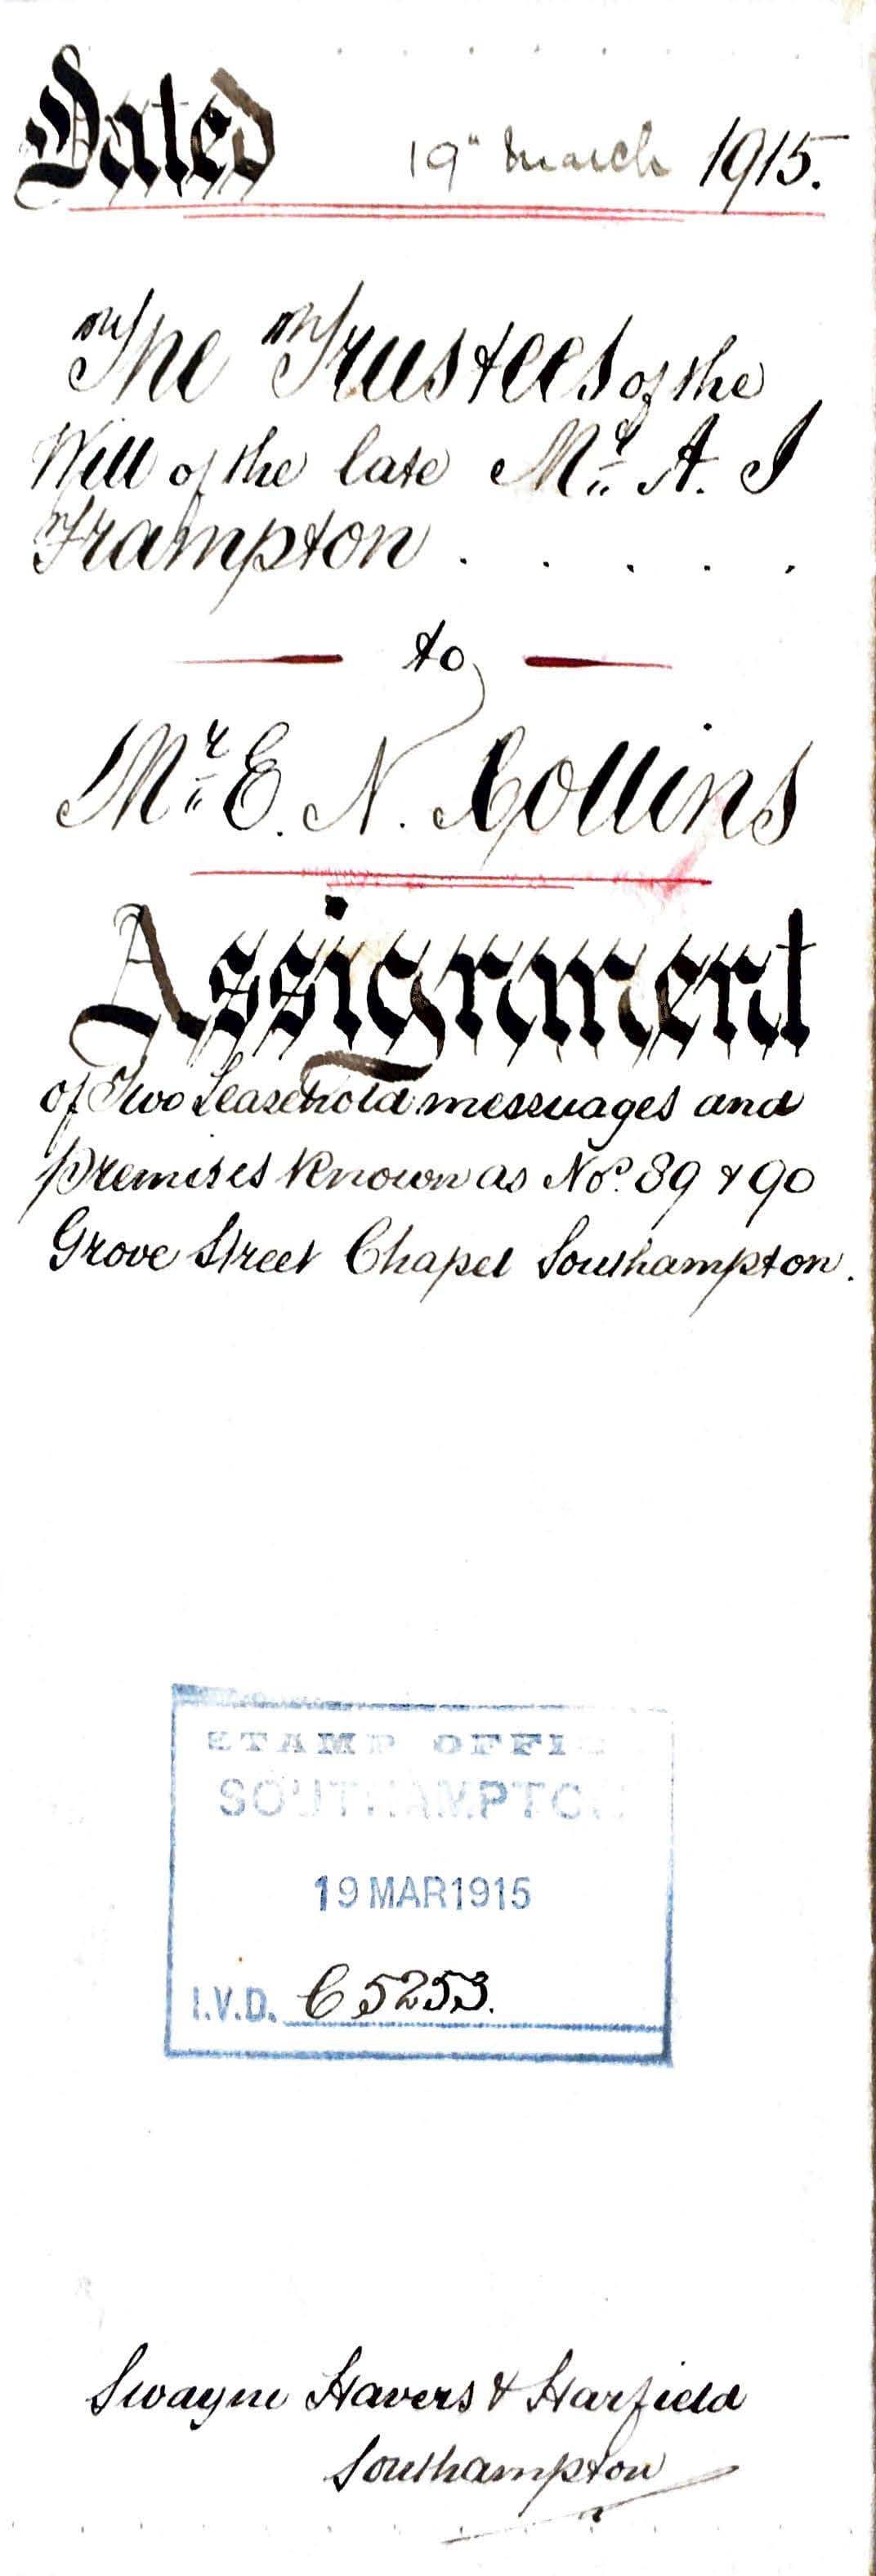 Dated 19" March 1915.
The Trustees of the
Will of the late Mr. A. J
Frampton . . . . .
to
Mr. E. N. Collins
Assignment
of Two Leasehold messuages and
premises known as Nos. 89 & 90
Grove Street Chapel Southampton.
STAMP OFFI
SOUTHAMPTON
19 MAR 1915
I.V.D. C 5253.
Swayne Havers & Harfield
Southampton